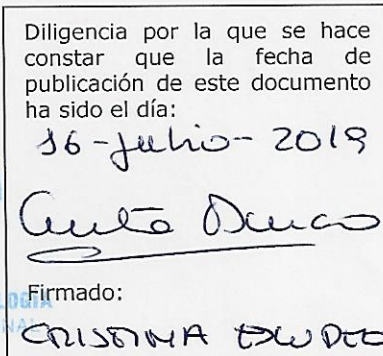 Diligencia por la que se hace
constar que la fecha de
publicación de este documento
ha sido el día:
16-Julio-2019
Firmado:
CRISTINA